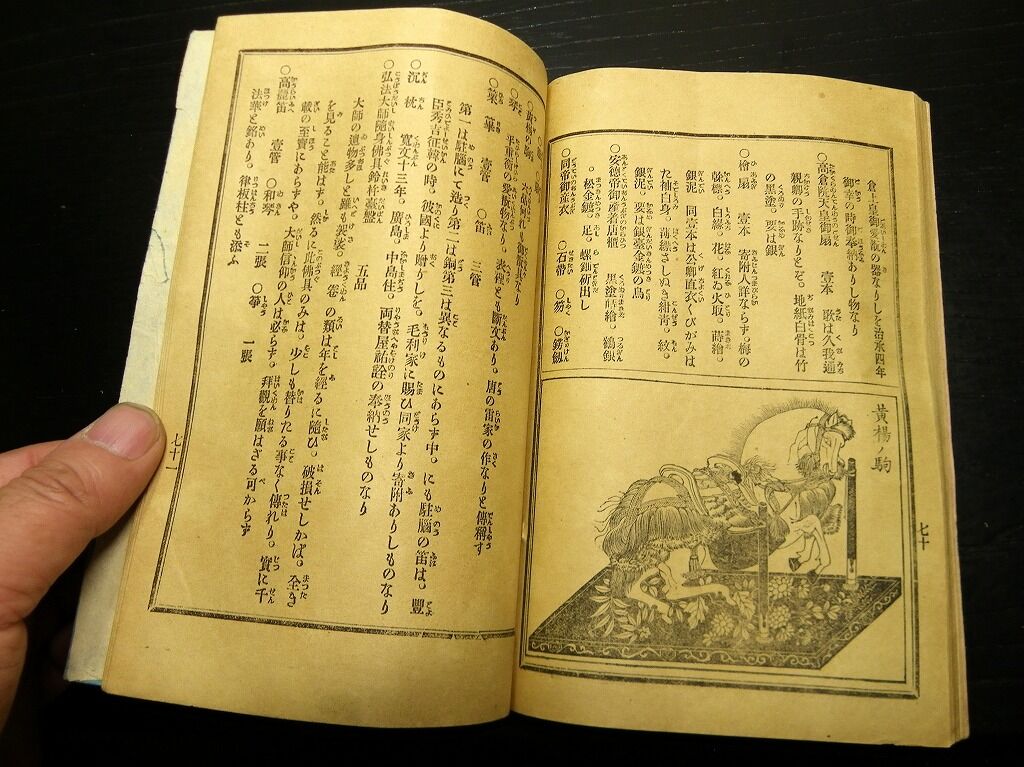 倉上皇御寄附の器なりしを治承四年
御幸の時御奉納ありし物なり
○高倉院天皇御扇 壹本 歌は久我通
親卿の手跡なりとぞ。地紙白骨は竹
の黒塗。要は銀
○檜扇 壹本 寄附人詳ならず。梅の
銀泥 同壹本は公卿直衣くびがみは
銀泥。要は銀臺金鍍の鳥
○安德帝御産着唐櫃 黒塗蒔繪。鶴銀
松金鍍。足。螺鈿研出し
○同帝御産衣 ○石帶 ○笏 ○錺劔
黃楊ノ駒
七十
○黃楊の駒
平重衡の
表裡とも斷文あり。唐の雷家の作なりと傳稱す
○篥篳 壹管 ○笛 三管
第一は駐腦にて造り第二は銅第三は異なるものにあらず中。にも駐腦の笛は。豐
臣秀吉征韓の時。彼國より贈りしを。毛利家に賜ひ同家より寄附ありしものなり
○沉枕 寬文十三年。廣島。中島住。両替屋祐詮の奉納せしものなり
○弘法大師隨身佛具鈴杵臺盤 五品
大師の遺物多しと雖も袈裟。經卷の類は年を經るに隨ひ。破損せしかば。全き
を見ること能はず。然るに此佛具のみは。少しも替りたる事なく傳れり。實に千
載の至寶にあらずや。大師信仰の人は必らず。拜觀を願はざる可からず
○高麗笛 壹管 ○和琴 二張 ○箏 一張
法華と銘あり。律板柱とも添ふ
七十一